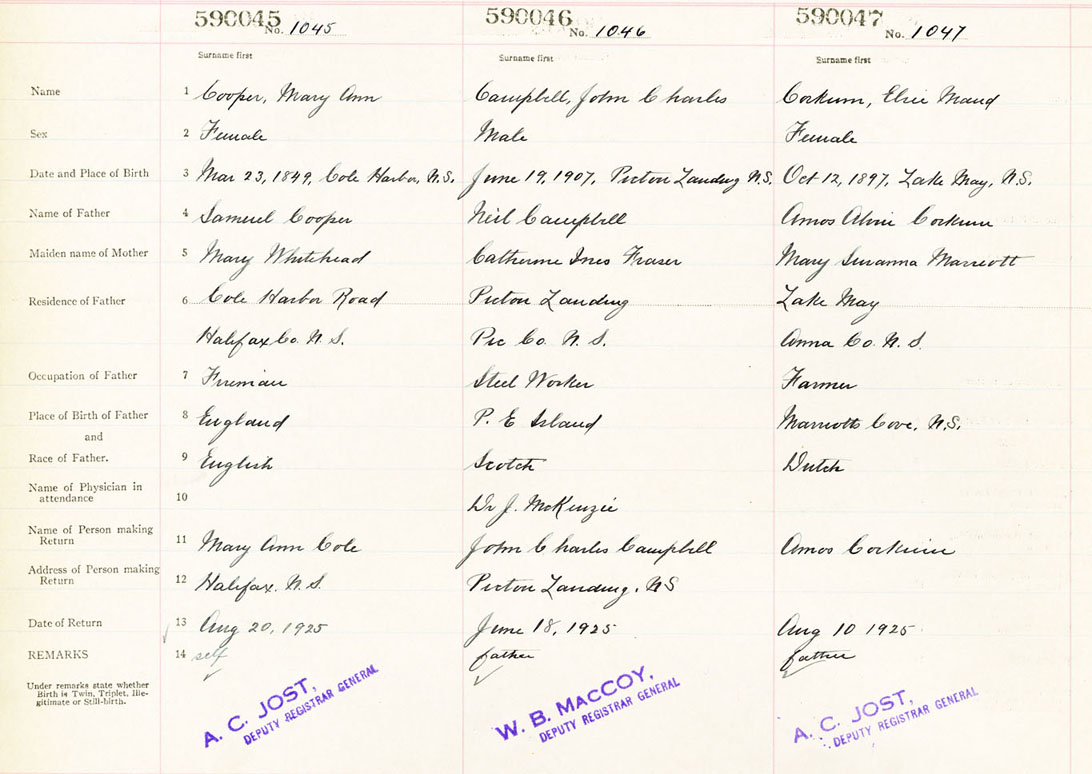 590045 No. 1045 590046 No. 1046 590047 No. 1047
Surname first Surname first Surname first
Name 1 Cooper, Mary Ann Campbell, John Charles Corkum, Elsie Maud
Sex 2 Female Male Female
Date and Place of Birth 3 Mar 23, 1849, Cole Harbor, N.S. June 19, 1907, Picton Landing N.S. Oct 12, 1897, Lake May, N.S.
Name of Father 4 Samuel Cooper Neil Campbell Amos Corkum
Maiden name of Mother 5 Mary Whitehead Catherine Ines Fraser Mary Susanna Marriott
Residence of Father 6 Cole Harbor Road Picton Landing Lake May
Halifax Co. N.S. Pic Co. N.S. Anna Co. N.S.
Occupation of Father 7 Fireman Steel Worker Farmer
Place of Birth of Father 8 England P. E Island Marriotts Cove, N.S.
and
Race of Father. 9 English Scotch Dutch
Name of Physician in
attendance 10 Dr J. McKenzie
Name of Person making
Return 11 Mary Ann Cole John Charles Campbell Amos Corkum
Address of Person making
Return 12 Halifax. N.S. Picton Landing. NS
Date of Return 13 Aug 20, 1925 June 18, 1925 Aug 10 1925
REMARKS 14 self father father
Under remarks state whether
Birth is Twin, Triplet, Ille-
gitimate or Still-birth.
A. C. JOST,
DEPUTY REGISTRAR GENERAL
W. B. MACCOY,
DEPUTY REGISTRAR GENERAL
A. C. JOST,
DEPUTY REGISTRAR GENERAL